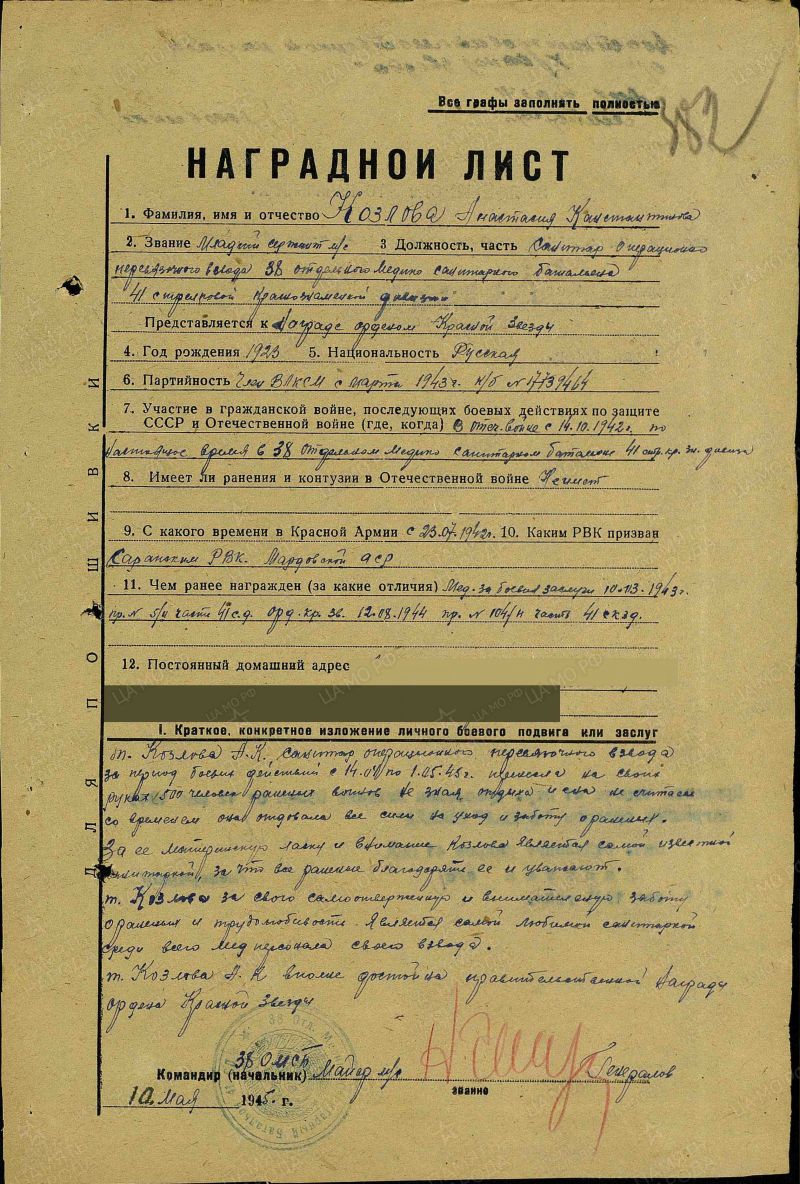 Все графы заполнять полностью
382
НАГРАДНОЙ ЛИСТ
1. Фамилия, имя и отчество Козлова Анастасия Константиновна
2. Звание Младший сержант м/с 3 Должность, часть Санитар операционно
перевязочного взвода 38 отдельного Медико санитарного баталиена
41 стрелковой Краснознаменной дивизии
Представляется к Награде орденом Красной Звезды
4. Год рождения 1923 5. Национальность Русская
6. Партийность Член ВЛКСМ с марта 1943г. к/б №17739464
7. Участие в гражданской войне, последующих боевых действиях по защите
СССР и Отечественной войне (где, когда) В отеч. войне с 14.10.1942г. по
настоящее время в 38 отдельном Медико санитарном баталионе 41 стр. кр. зн. дивизи
8. Имеет ли ранения и контузии в Отечественной войне Не имеет
9. С какого времени в Красной Армии с 23.07.1942г. 10. Каким РВК призван
Саранским РВК. Мардовской аср
11. Чем ранее награжден (за какие отличия) Мед. за боевые заслуги 10.03.1943г.
пр. № 5/н части 41 с.д. орд. кр. зв. 12.08.1944 пр. № 104/н часть 41 скзд.
12. Постоянный домашний адрес
I. Краткое, конкретное изложение личного боевого подвига или заслуг
т. Козлова А.К. санитар операционного перевязочного взвода
за период боевых действий с 14.04 по 1.05.45г. принесла на своих
руках 500 человек раненых воинов не зная отдыха и сна не считаясь
со временем она отдовала все силы на уход и заботу о раненых.
За ее материнскую ласку и внимание Козлова является самой известной
санитаркой, за что все раненые благодарят ее и уважают.
т. Козлова за свою самоотверженную и внимательную заботу
о раненых и трудолюбивость. Является самой любимой санитаркой
среди всего мед персонала своего взвода.
т. Козлова А. К вполне достойна правительственной Награды
ордена Красной Звезды
38 ОМСБ
Командир (начальник) Майор м/с Генералов
звание
10 Мая 1945 г.
ДЛЯ ПОДШИВКИ